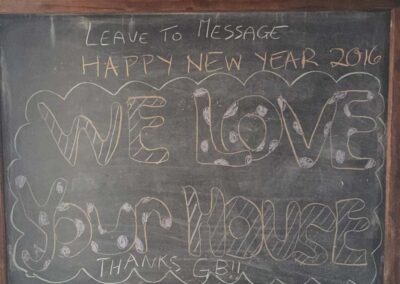 LEAVE TO MESSAGE
HAPPY NEW YEAR 2016
WE LOVE
Your HOUSE
THANKS GB!!